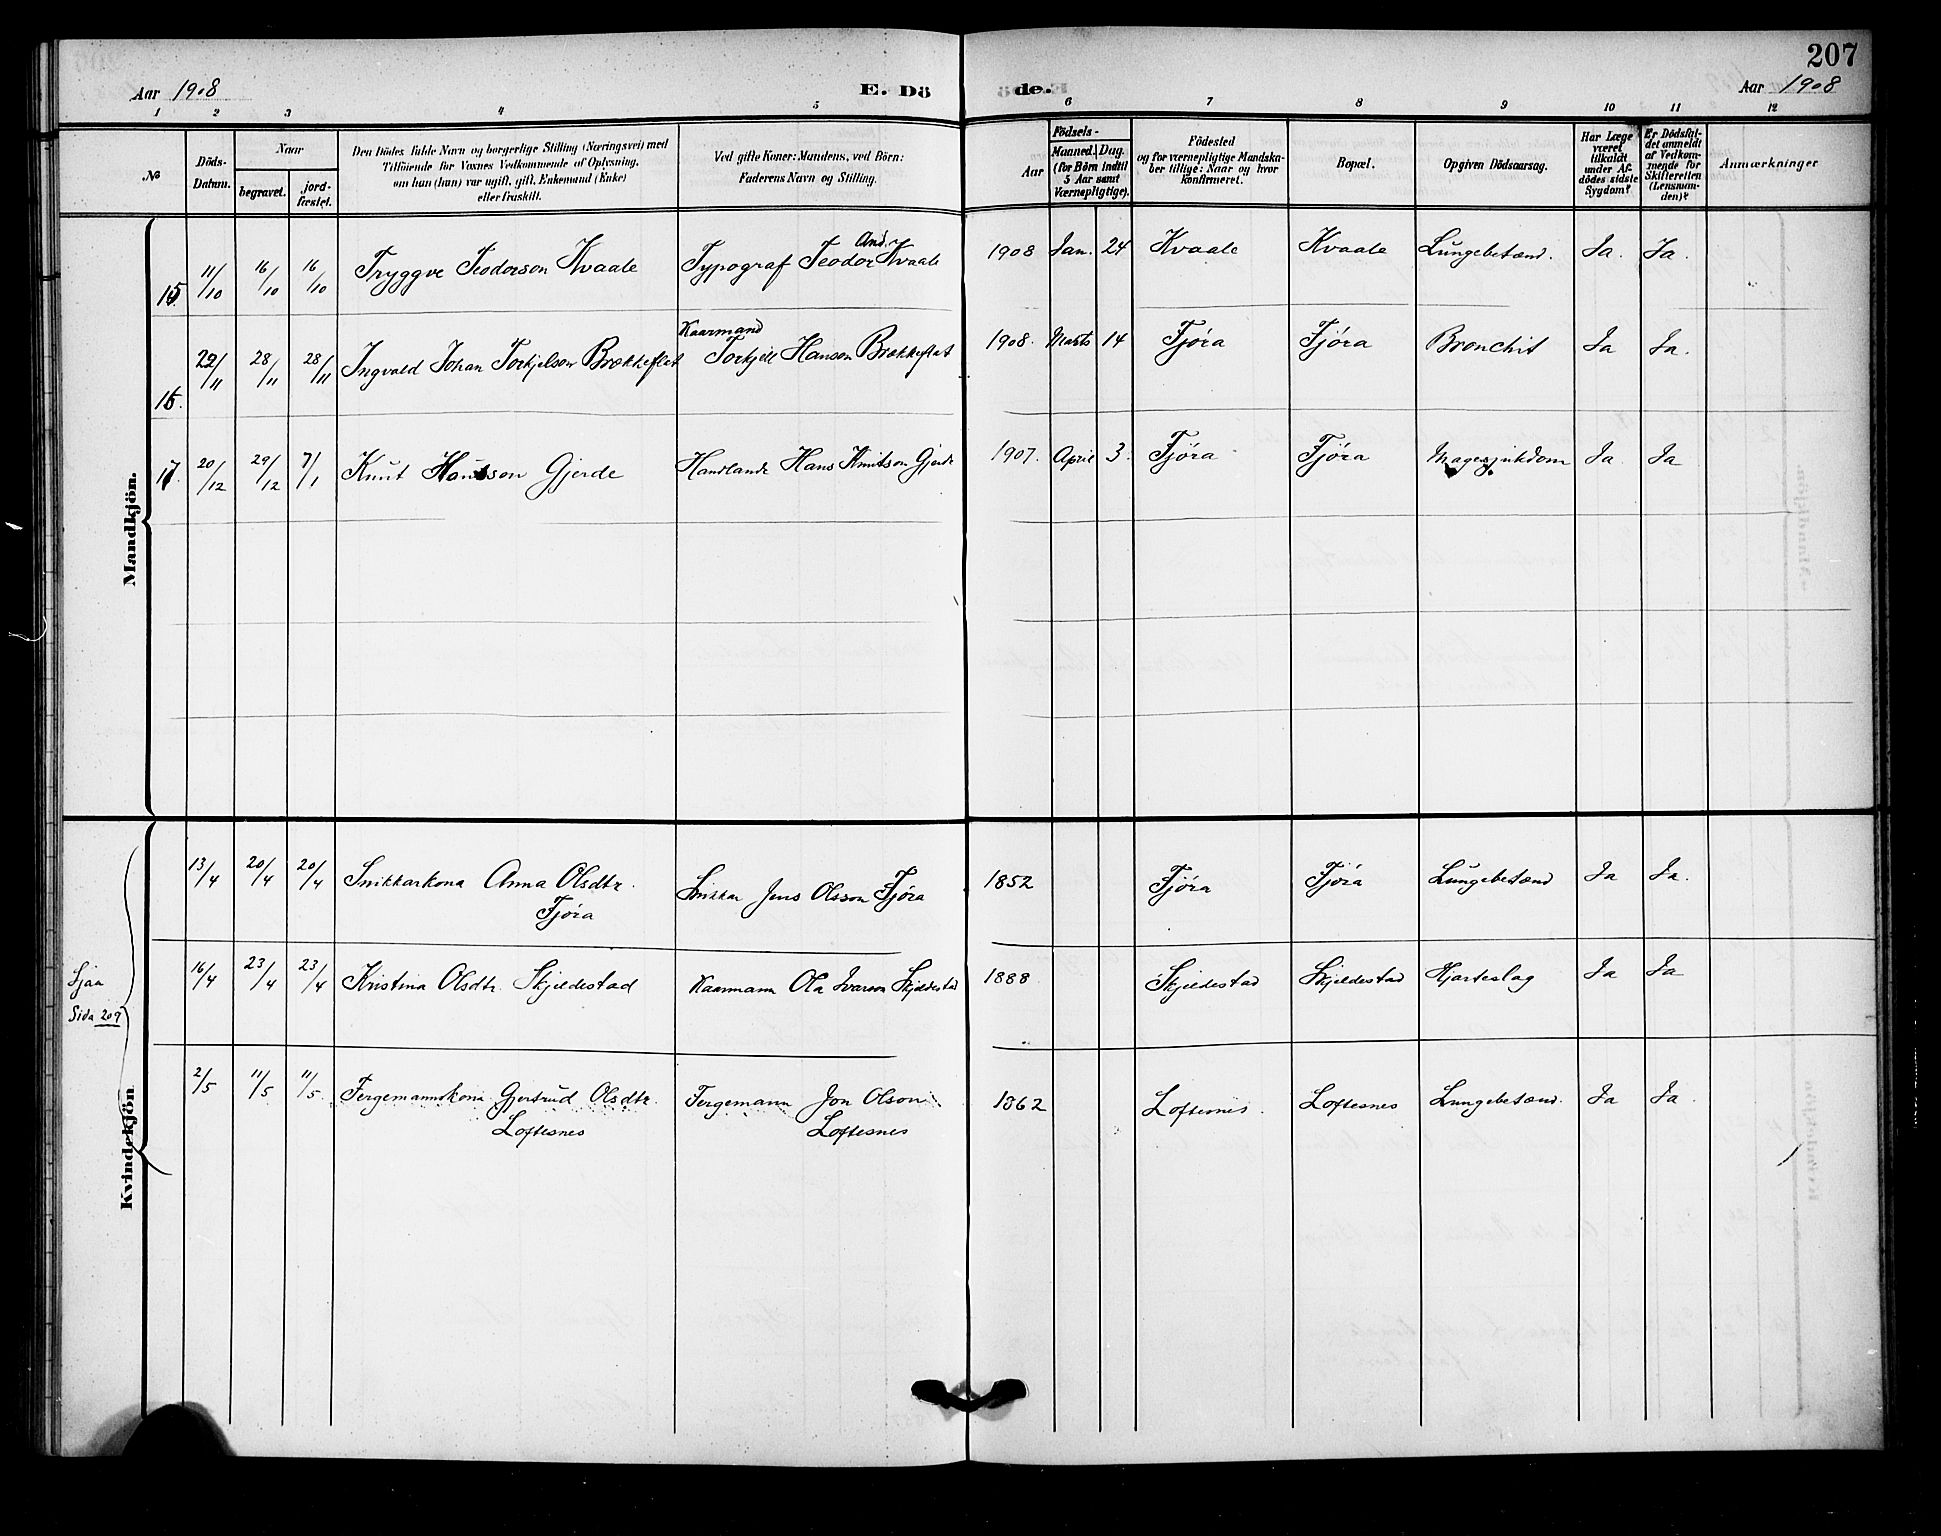 207
Aar 1908 E. Dö de. Aar 1908
1 2 3 4 5 6 7 8 9 10 11 12
№
Döds-Datum.
Naar
begravet.
jord-fæstet.
Den Dödes fulde Navn og borgerlige Stilling (Næringsvei) med
Tilföiende for Voxnes Vedkommende af Oplysning,
om han (hun) var ugift, gift, Enkemand (Enke)
eller fraskilt.
Ved gifte Koner: Mandens, ved Börn:
Faderens Navn og Stilling.
Födsels-
Aar
Maaned. Dag.
(for Börn indtil
5 Aar samt
Værnepligtige).
Födested
og for værnepligtige Mandska-
ber tillige: Naar og hvor
konfirmeret.
Bopæl.
Opgiven Dödsaarsag.
Har Læge
været
tilkaldt
under Af-
dödes sidste
Sygdom?
Er Dödsfal-
det anmeldt
af Vedkom-
mende for
Skifteretten
(Lensman-
den)?
Anmærkninger
Mandkjön.
15 11/10 16/10 16/10 Tryggve Teodorson Kvaale Typograf Teodor And. Kvaale 1908 Jan. 24 Kvaale Kvaale Lungebetænd. Ja. Ja.
16. 22/11 28/11 28/11 Ingvald Johan Torkjelson Brækkeflat Kaarmand Torkjell Hanson Brækkeflat 1908. Marts 14 Fjøra Fjøra Bronchit Ja Ja.
17. 20/12 29/12 7/1 Knut Hansson Gjerde Handlande Hans Knutson Gjerde 1907. April 3. Fjøra Fjøra Magesjukdom Ja Ja
Kvindekjön
Sjaa
Sida 209
13/4 20/4 20/4 Snikkarkona Anna Olsdtr. Snikkar Jens Olsson Fjøra 1852 Fjøra Fjøra Lungebetænd Ja Ja.
Fjøra
16/4 23/4 23/4 Kristina Olsdtr. Skjeldestad Kaarmann Ola Ivarson Skjeldestad 1888 Skjeldestad Skjeldestad Hjarteslag Ja Ja
2/5 11/5 11/5. Fergemannskona Gjertrud Olsdtr. Fergemann Jon Olson 1862 Loftesnes. Loftesnes Lungebetænd. Ja Ja.
Loftesnes Loftesnes